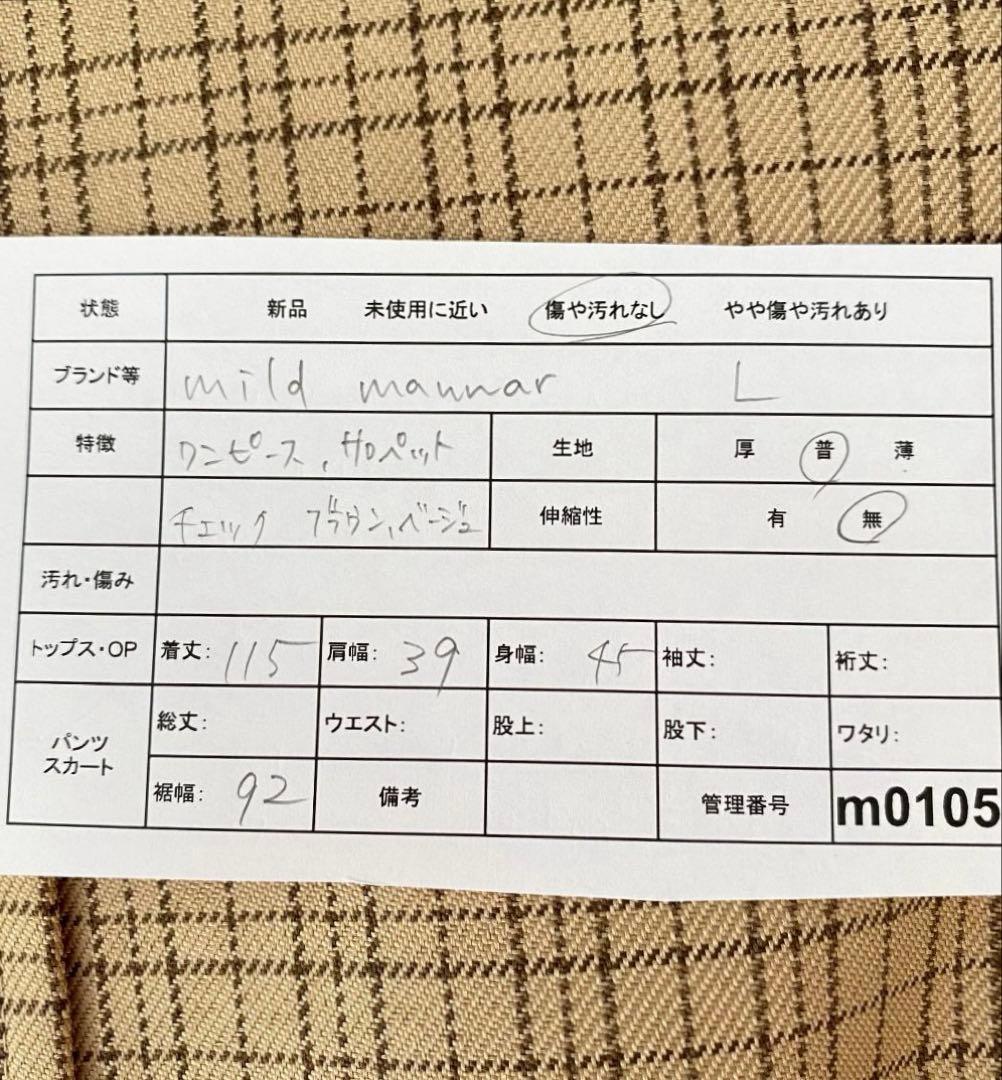 状態 新品 未使用に近い 傷や汚れなし やや傷や汚れあり
ブランド等 mild mannar L
特徴 ワンピース、サロペット 生地 厚 普 薄
チェック ブラウン、ベージュ 伸縮性 有 無
汚れ・傷み
トップス・OP 着丈: 115 肩幅: 39 身幅: 45 袖丈: 裄丈:
パンツ スカート 総丈: ウエスト: 股上: 股下: ワタリ:
裾幅: 92 備考 管理番号 m0105